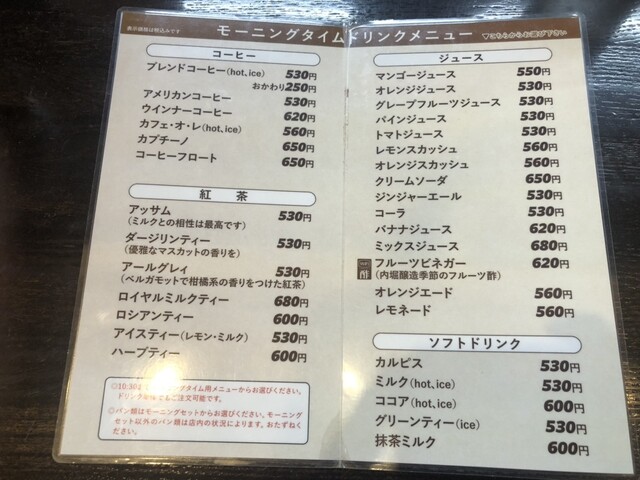 表示価格は税込みです
モーニングタイムドリンクメニュー
▽こちらからお選び下さい
コーヒー
ブレンドコーヒー(hot,ice) 530円
おかわり250円
アメリカンコーヒー 530円
ウインナーコーヒー 620円
カフェ・オ・レ(hot,ice) 560円
カプチーノ 650円
コーヒーフロート 650円
紅 茶
アッサム 530円
(ミルクとの相性は最高です)
ダージリンティー 530円
(優雅なマスカットの香りを)
アールグレィ 530円
(ベルガモットで柑橘系の香りをつけた紅茶)
ロイヤルミルクティー 680円
ロシアンティー 600円
アイスティー(レモン・ミルク) 530円
ハーブティー 600円
◎10:30まで モーニングタイム用メニューからお選びください。
ドリンク単品でもご注文可能です。
◎パン類はモーニングセットからお選びください。モーニング
セット以外のパン類は店内の状況によります。おたずねく
ださい。
ジュース
マンゴージュース 550円
オレンジジュース 530円
グレープフルーツジュース 530円
パインジュース 530円
トマトジュース 530円
レモンスカッシュ 560円
オレンジスカッシュ 560円
クリームソーダ 650円
ジンジャーエール 530円
コーラ 530円
バナナジュース 620円
ミックスジュース 680円
酢 フルーツビネガー 620円
(内堀醸造季節のフルーツ酢)
オレンジエード 560円
レモネード 560円
ソフトドリンク
カルピス 530円
ミルク(hot,ice) 530円
ココア(hot,ice) 600円
グリーンティー(ice) 530円
抹茶ミルク 600円